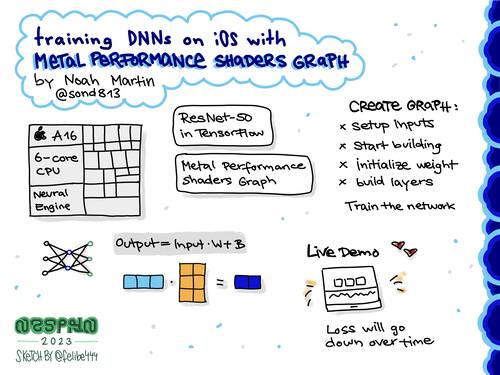 training DNNs on iOS with
METAL PERFORMANCE SHADERS GRAPH
by Noah Martin
@sond813
A16
6-core
CPU
Neural
Engine
ResNet-50
in TensorFlow
Metal Performance
Shaders Graph
CREATE GRAPH:
x setup inputs
x start building
x initialize weight
x build layers
Train the network
Output = Input · W + B
Live Demo
Loss will go
down over time
NSSPAIN
2023
SKETCH BY @felibe444